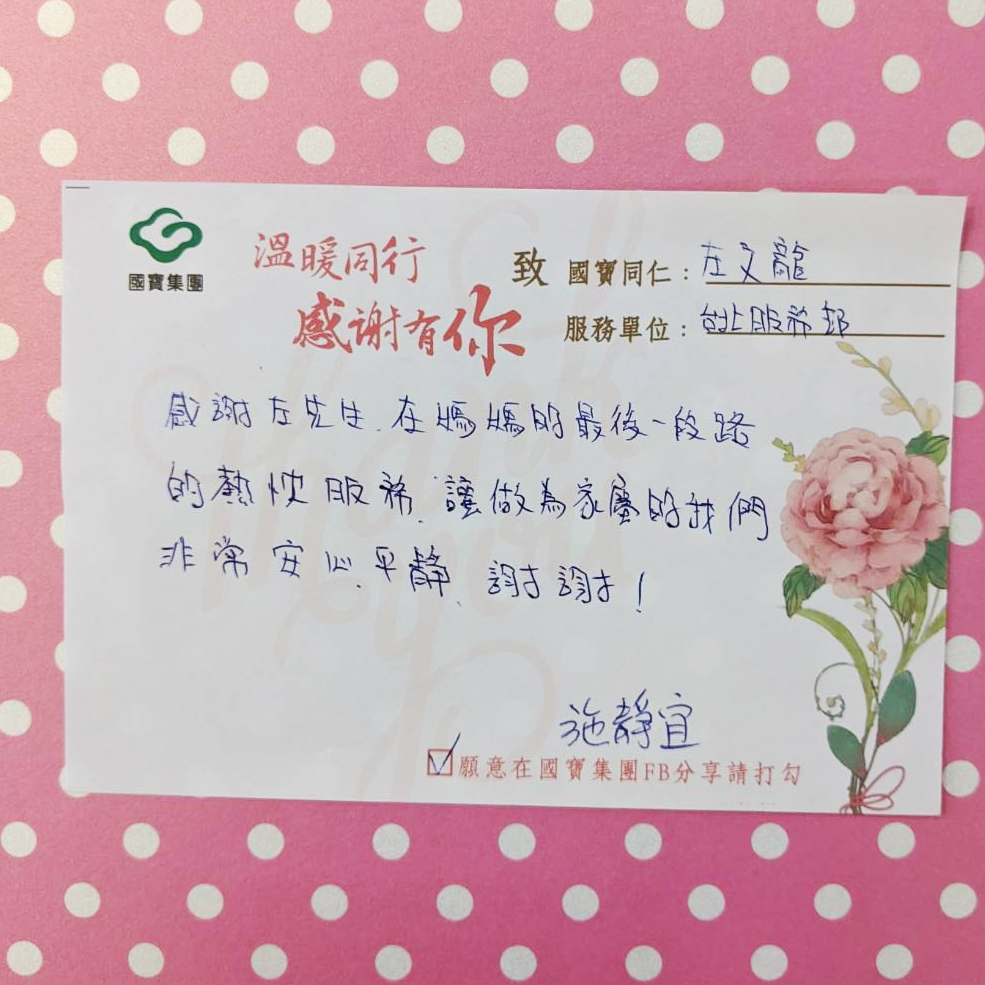 國寶集團
溫暖同行
感謝有你
致 國寶同仁：左文龍
服務單位：台北服務部
感謝左先生.在媽媽的最後一段路
的熱忱服務.讓做為家屬的我們
非常安心.平靜.謝謝!
施靜宜
☑願意在國寶集團FB分享請打勾